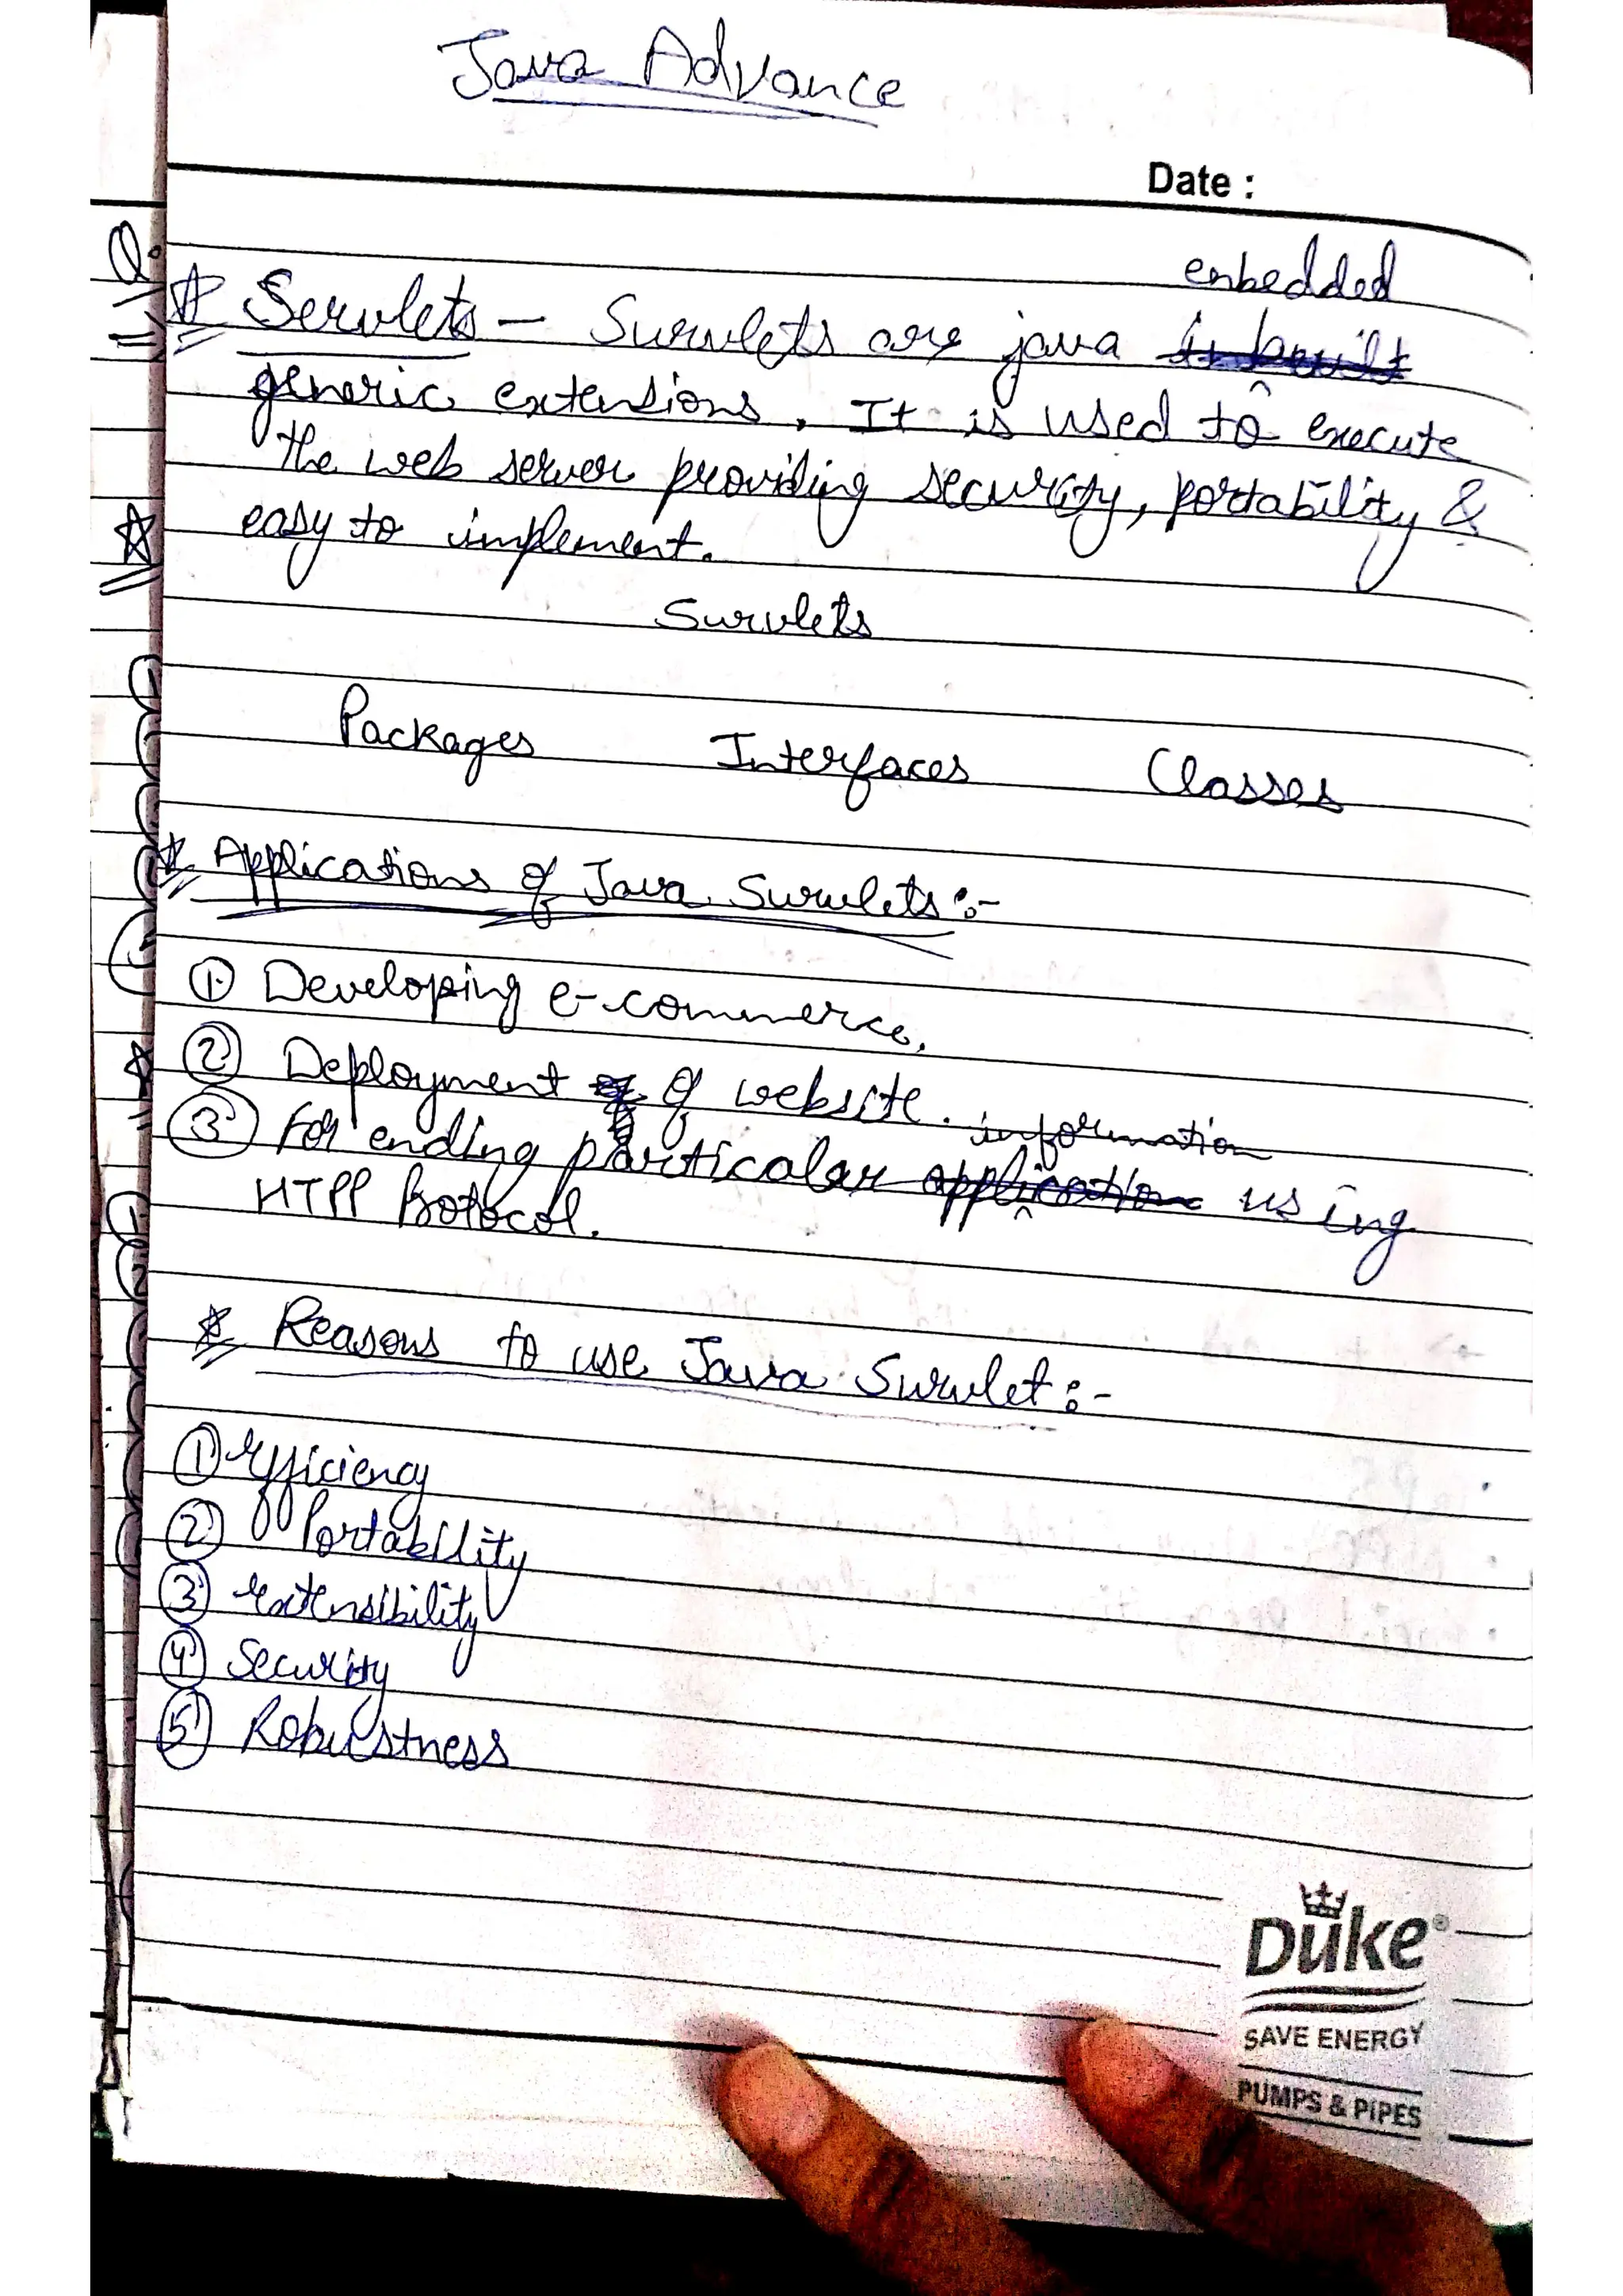 Java Advance
Date :
enbedded
Q.
☆ Servlets – Survlets are java in built
generic extensions. It is used to execute
the web server providing security, portability &
easy to implement.
Survlets
Packages Interfaces Classes
☆ Applications of Java Survlets :-
① Developing e-commerce.
② Deployment of of website. information
③ For ending particular application using
HTPP Protocol.
☆ Reasons to use Java Survlet :-
① efficiency
② Portability
③ extensibility
④ Security
⑤ Robustness
Duke®
SAVE ENERGY
PUMPS & PIPES